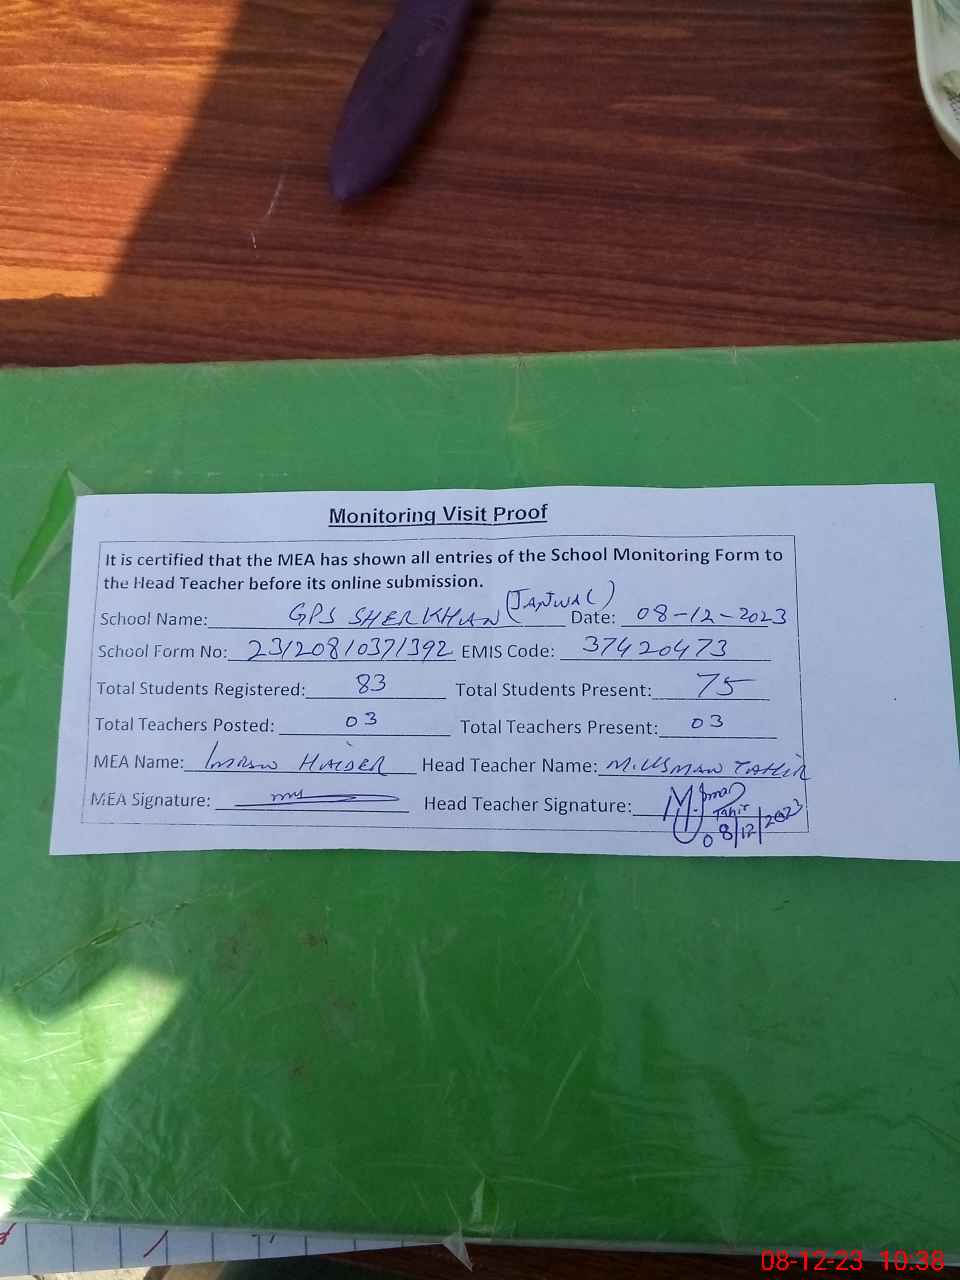 Monitoring Visit Proof
It is certified that the MEA has shown all entries of the School Monitoring Form to
the Head Teacher before its online submission.
School Name: GPS SHER KHAN (JANJWAL) Date: 08-12-2023
School Form No: 23120810371392 EMIS Code: 37420473
Total Students Registered: 83 Total Students Present: 75
Total Teachers Posted: 03 Total Teachers Present: 03
MEA Name: Imran HAIDER Head Teacher Name: M.USMAN TAHIR
MEA Signature: Head Teacher Signature:
Tahir
08/12/2023
08-12-23 10:38